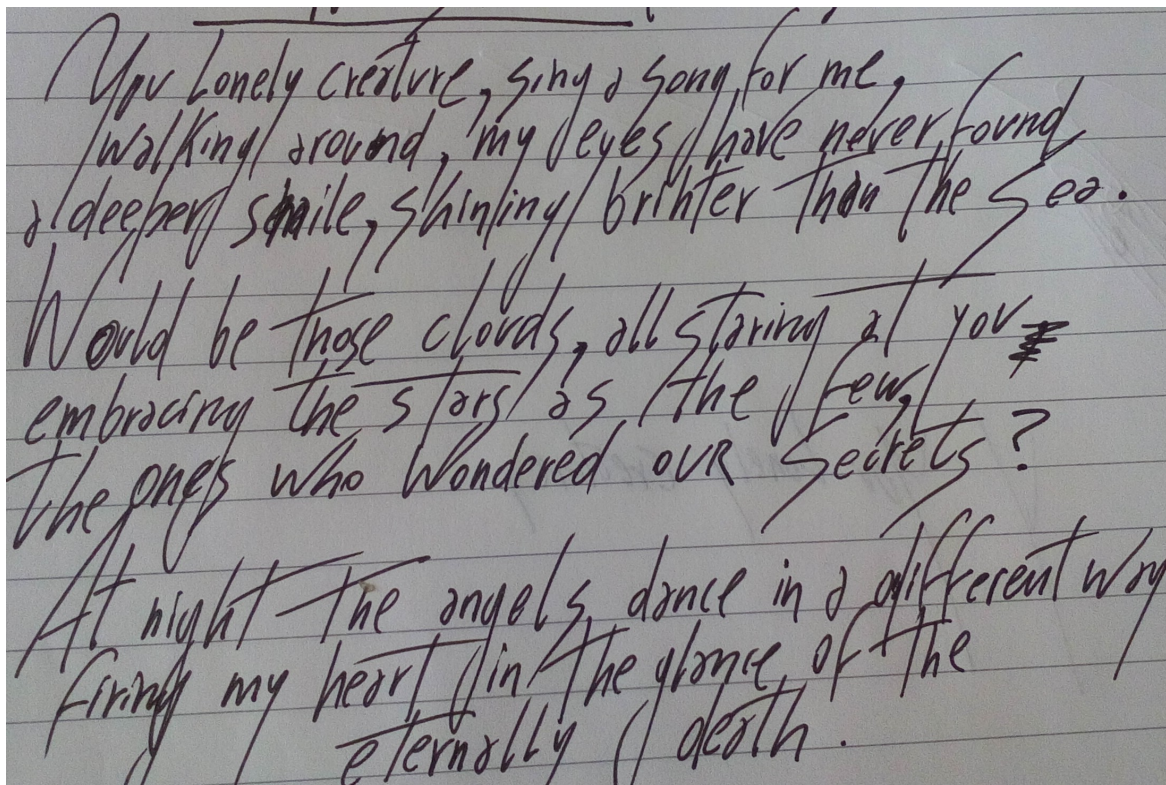 You Lonely creature, sing a song for me,
walking around, my eyes have never found
a deeper smile, shining brihter than the sea.
Would be those clouds, all staring at you
embracing the stars as the few,
the ones who wondered OUR secrets?
At night the angels dance in a different way
firing my heart in the glance of the
eternally death.